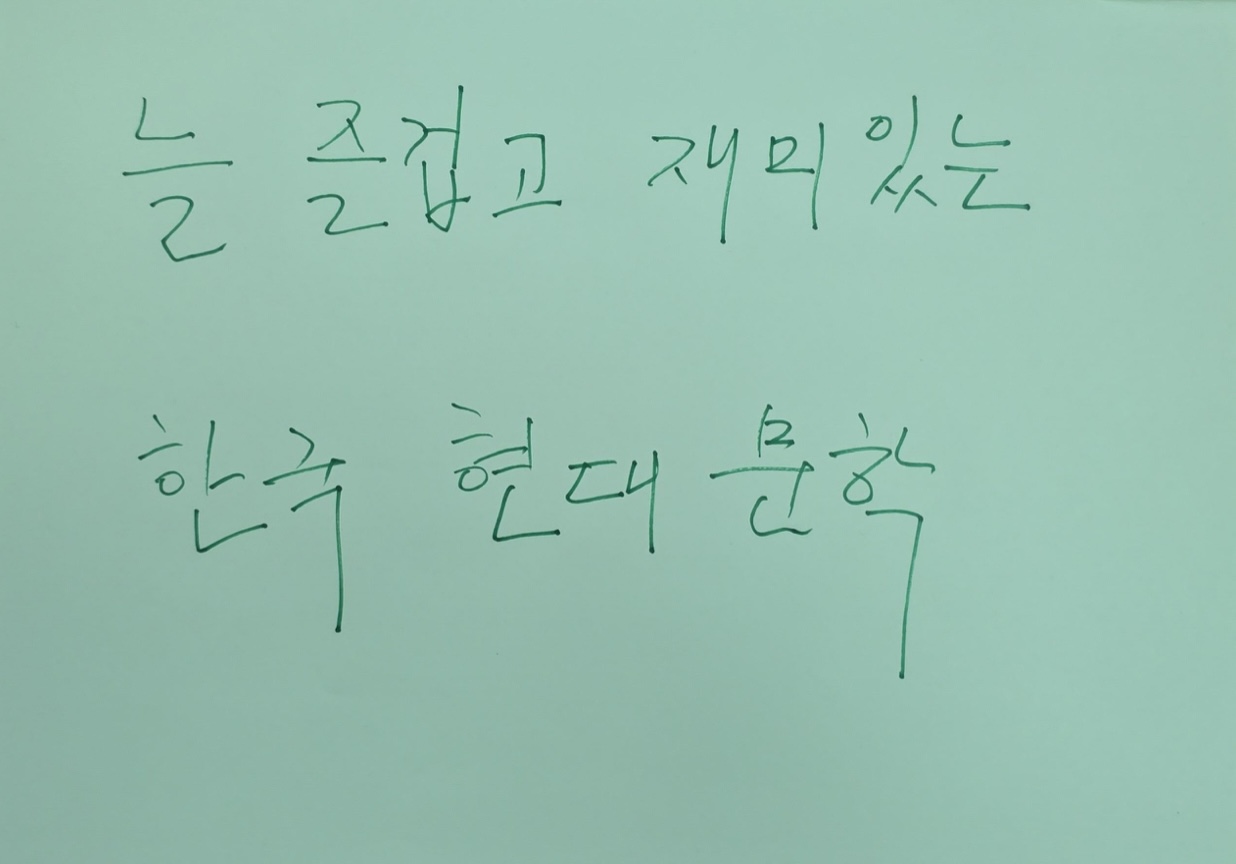 늘 즐겁고 재미있는
한국 현대문학